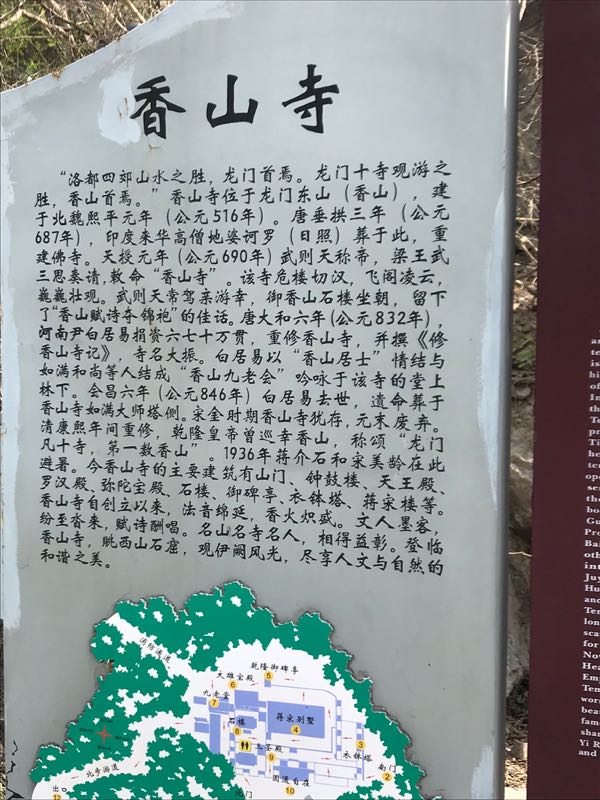 香山寺
“洛都四郊山水之胜，龙门首焉。龙门十寺观游之
胜，香山首焉。”香山寺位于龙门东山（香山），建
于北魏熙平元年（公元516年）。唐垂拱三年（公元
687年），印度来华高僧地婆诃罗（日照）葬于此，重
建佛寺。天授元年（公元690年）武则天称帝，梁王武
三思奏请，敕命“香山寺”。该寺危楼切汉，飞阁凌云，
巍巍壮观。武则天常驾亲游幸，御香山石楼坐朝，留下
了“香山赋诗夺锦袍”的佳话。唐大和六年（公元832年），
河南尹白居易捐资六七十万贯，重修香山寺，并撰《修
香山寺记》，寺名大振。白居易以“香山居士”情结与
如满和尚等人结成“香山九老会”吟咏于该寺的堂上
林下。会昌六年（公元846年）白居易去世，遗命葬于
香山寺如满大师塔侧。宋金时期香山寺犹存，元末废弃。
清康熙年间重修，乾隆皇帝曾巡幸香山，称颂“龙门
凡十寺，第一数香山”。1936年蒋介石和宋美龄在此
避暑。今香山寺的主要建筑有山门、钟鼓楼、天王殿、
罗汉殿、弥陀宝殿、石楼、御碑亭、衣钵塔、蒋宋楼等。
香山寺自创立以来，法音绵延，香火炽盛。文人墨客，
纷至沓来，赋诗酬唱。名山名寺名人，相得益彰。登临
香山寺，眺西山石窟，观伊阙风光，尽享人文与自然的
和谐之美。
消防通道
乾隆御碑亭
5
大雄宝殿
6
九老堂
7
石楼
8
蒋宋别墅
4
三圣殿
9
3
衣钵塔
南门
2
北步游道
圆通自在
10
出口
12
北门